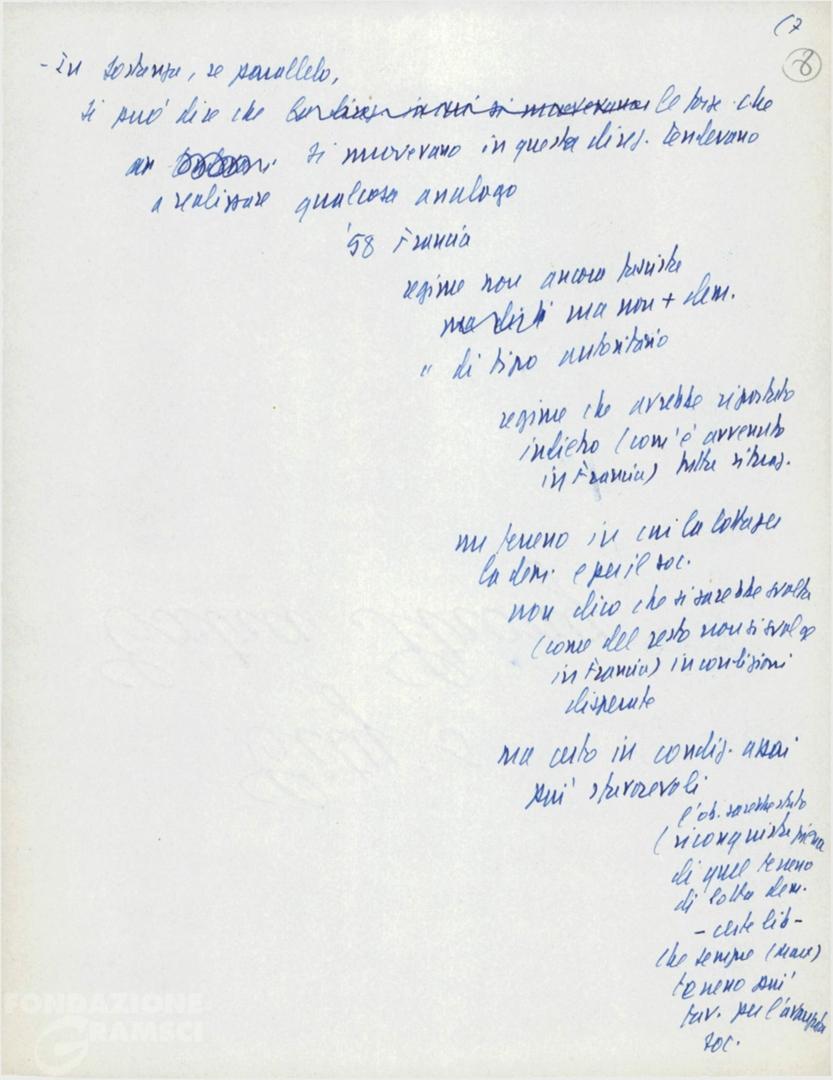 (7
8
- In sostanza, se parallelo,
si può dire che la direz. in cui si muovevano le forze che
si muovevano in questa direz. tendevano
a realizzare qualcosa analogo
'58 Francia
regime non ancora fascista
ma non + dem.
" di tipo autoritario
regime che avrebbe riportato
indietro (com'è avvenuto
in Francia) tutta situaz.
un terreno in cui la lotta per
la dem. e per il soc.
non dico che si sarebbe svolta
(come del resto non si svolge
in Francia) in condizioni
disperate
ma certo in condiz. assai
più sfavorevoli
l'ob. sarebbe stato
(riconquista piena
di quel terreno
di lotta dem.
- certe lib -
che sempre (Marx)
terreno più
fav. per l'avanzata
soc.
FONDAZIONE
GRAMSCI